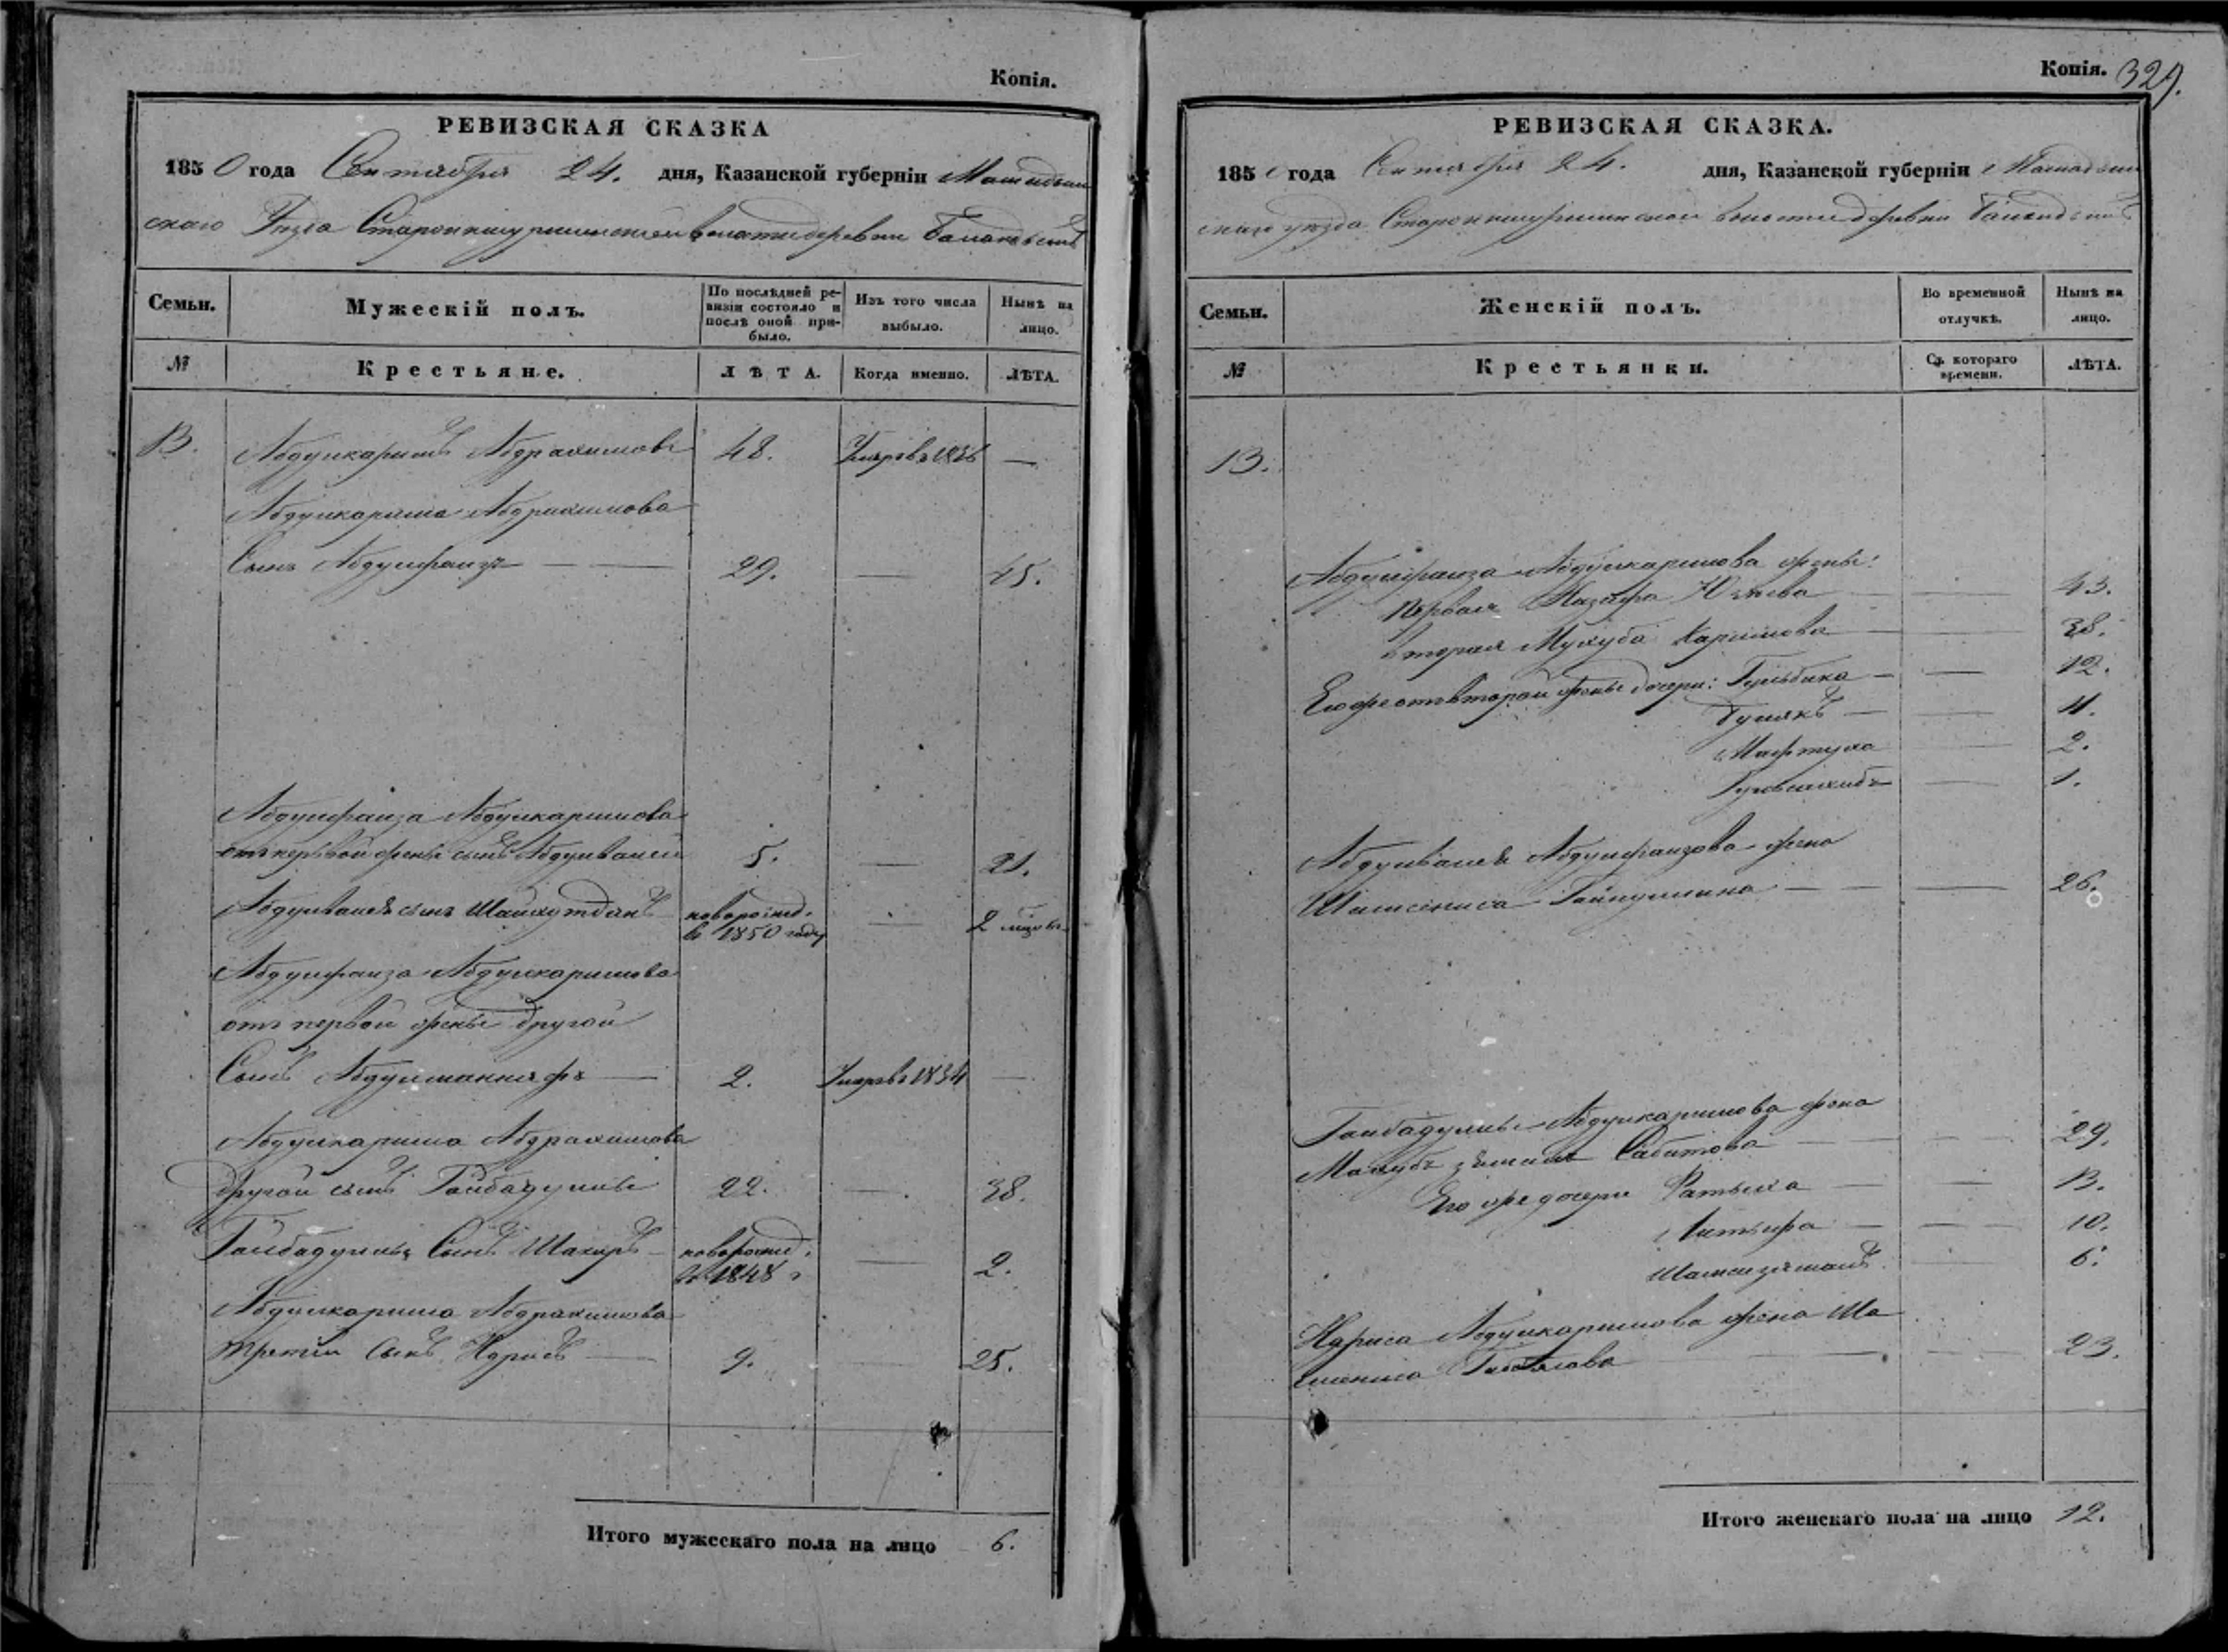 Копія.
РЕВИЗСКАЯ СКАЗКА
1850 года Сентября 24. дня, Казанской губерніи Мамадыш
скаго Уѣзда Старокишуришинской волости деревни
Семьи.
Мужескій полъ.
По послѣдней ре-
визіи состояло и
послѣ оной при-
было.
Изъ того числа
выбыло.
Нынѣ на
лицо.
№
Крестьяне.
ЛѢТА.
Когда именно.
ЛѢТА.
13. Абдулкаримъ Абдрахимовъ 48. Умеръ в 1836 —
Абдулкарима Абдрахимова
Сынъ Абдулфаизъ — 29. — 45.
Абдулфаиза Абдулкаримова
отъ первой жены сынъ Абдулвалей 5. — 21.
Абдулвалея сынъ Шайхутдинъ новорожд. — 2 мѣсяц.
в 1850 году
Абдулфаиза Абдулкаримова
отъ первой жены другой
Сынъ Абдулманнафъ — 2. Умеръ в 1834 —
Абдулкарима Абдрахимова
другой сынъ Гайбадулла 22. — 38.
Гайбадуллы Сынъ Шакиръ — новорожд. — 2.
в 1848 г
Абдулкарима Абдрахимова
третій сынъ Идрисъ — 9. 25.
Итого мужескаго пола на лицо 6.
Копія. 329.
РЕВИЗСКАЯ СКАЗКА.
1850 года Сентября 24. дня, Казанской губерніи Мамадыш
скаго уѣзда Старокишуришинской волости деревни
Семьи.
Женскій полъ.
Во временной
отлучкѣ.
Нынѣ на
лицо.
№
Крестьянки.
Съ котораго
времени.
ЛѢТА.
13.
Абдулфаиза Абдулкаримова жены:
первая Назифа — 43.
вторая Махуба Каримова — 38.
Его же отъ второй жены дочери: Гульбика — 12.
— 4.
Мафтуха — 2.
— 1.
Абдулвалея Абдулфаизова жена
Шамсениса Гайнуллина — 26.
Гайбадуллы Абдулкаримова жена
Сабитова — 29.
Его же дочери Фатыха — 13.
Латыфа — 10.
Шамсизямалъ — 6.
Идриса Абдулкаримова жена Ша
мсениса — 23.
Итого женскаго пола на лицо 12.